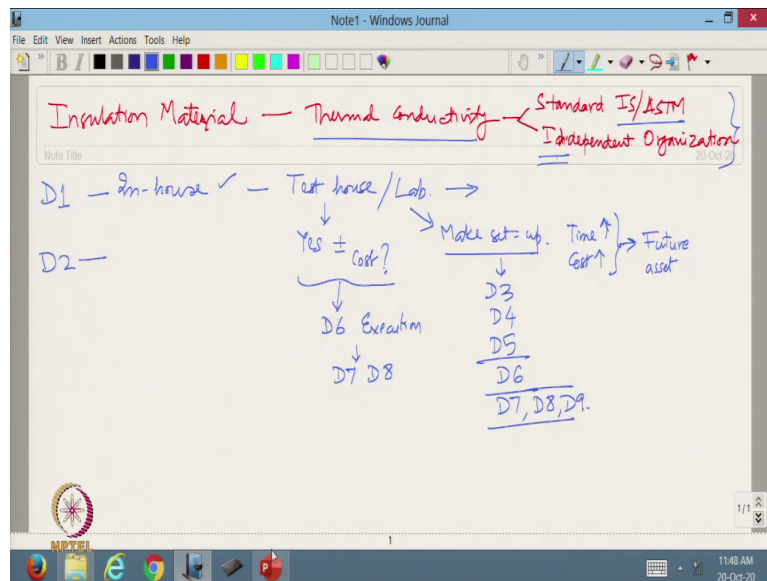 Note1 - Windows Journal
File Edit View Insert Actions Tools Help
Insulation Material — Thermal conductivity — Standard IS/ASTM
Independent Organization
Note Title
20-Oct-20
D1 — In-house ✓ — Test house/Lab. →
Yes ± Cost?
Make set-up. Time ↑
Cost ↑
Future
asset
D2 —
D3
D4
D5
D6
D7, D8, D9.
D6 Execution
D7 D8
1/1
NPTEL
1
11:48 AM
20-Oct-20